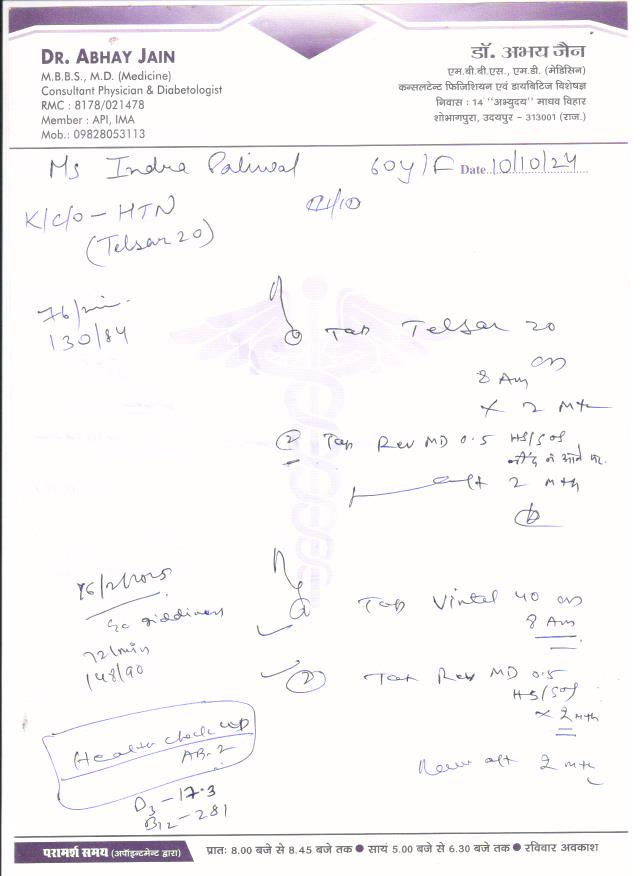 DR. ABHAY JAIN
M.B.B.S., M.D. (Medicine)
Consultant Physician & Diabetologist
RMC : 8178/021478
Member : API, IMA
Mob.: 09828053113
डॉ. अभय जैन
एम.बी.बी.एस., एम.डी. (मेडिसिन)
कन्सलटेन्ट फिजिशियन एवं डायबिटिज विशेषज्ञ
निवास : 14 "अभ्युदय" माधव विहार
शोभागपुरा, उदयपुर - 313001 (राज.)
Ms Indra Paliwal 60y/F Date 10/10/24
K/c/o - HTN
(Telsar 20)
76/min.
130/84
① Tab Telsar 20
OD
8 Am
x 2 Mth
② Tab Rev MD 0.5 HS/SOS
नींद न आने पर
aft 2 mth
/2/2025
c/o Giddiness
72/min
148/90
① Tab Vintel 40 OD
8 Am
② Tab Rev MD 0.5
HS/SOS
x 2 Mth
Health check up
AB-2
D3 - 17.3
B12 - 281
Review aft 2 mth
परामर्श समय (अपॉइन्टमेन्ट द्वारा) प्रातः 8.00 बजे से 8.45 बजे तक ● सायं 5.00 बजे से 6.30 बजे तक ● रविवार अवकाश